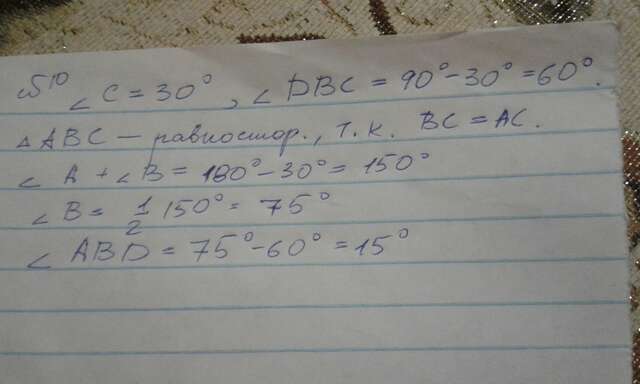 №10 ∠ C = 30°, ∠ DBC = 90° - 30° = 60°.
△ ABC — равностор., т.к. BC = AC.
∠ A + ∠ B = 180° - 30° = 150°
∠ B = 1/2 150° = 75°
∠ ABD = 75° - 60° = 15°